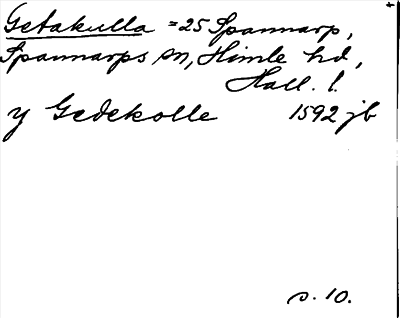 Getakulla = 25 Spannarp,
Spannarps sn, Himle hd,
Hall. l.
y Gedekolle 1592 jb
s. 10.